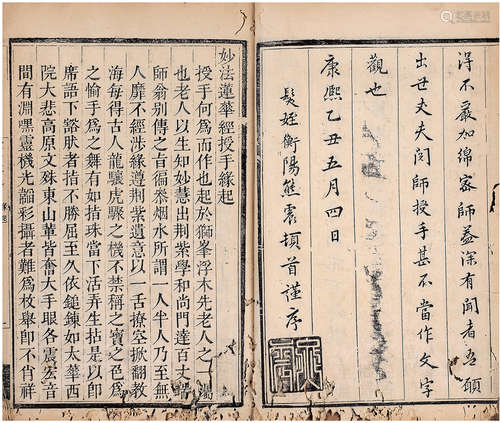 浔不嚴加綿密師益深有聞者吾願
出世丈夫閱師授手甚不當作文字
觀也
康熙乙丑五月四日
髮姪衡陽熊震頓首謹序
妙法蓮華經授手緣起
授手何為而作也起於獅峯浮木先老人之一
也老人以生知妙慧出荆紫學和尚門達百丈
師翁別傳之旨徧叅烟水所謂一人半人乃至無
人靡不經涉緣遵荆紫遺意以一舌撩空掀翻教
海每得古人龍驤虎驟之機不禁稱之寶之色為
之愉手為之舞有如指珠當下活弄生拈是以即
席語下豁肤者指不勝屈至久依鎚鍊如太華西
院大悲高原文殊東山輩皆奮大手眼各震宏音
間有淵嘿靈機光韜彩攝者難為枚舉即不肖祥